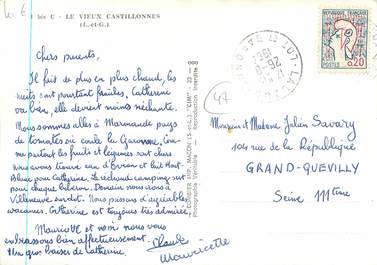 10 €
bis C - LE VIEUX CASTILLONNES
(L.-et-G.)
Chers parents,
Il fait de plus en plus chaud, les
nuits sont pourtant fraîches, Catherine
va bien, elle devient moins méchante.
Nous sommes allés à Marmande pays
de tomates où coule la Garonne, Com
me partout les fruits et légumes sont chers
nous avons trouvé eau d'Evian et lait Mont
Blanc pour Catherine. Le rechaud camping sert
pour chaque biberon. Demain nous irons à
Villeneuve sur Lot. Nous passons d'agréables
vacances. Catherine est toujours très admirée.
Mauricette et moi nous vous
embrassons bien affectueusement.
Un gros baiser de Catherine.
Claude
Mauricette
COMBIER IMP. MACON (S.-et-L.) "CIM"
Reproduction Interdite
LOT
1962
47
REPUBLIQUE FRANCAISE
0,20
POSTES
Monsieur et Madame Julien Savary
104 rue de la République
GRAND-QUEVILLY
Seine Mtime